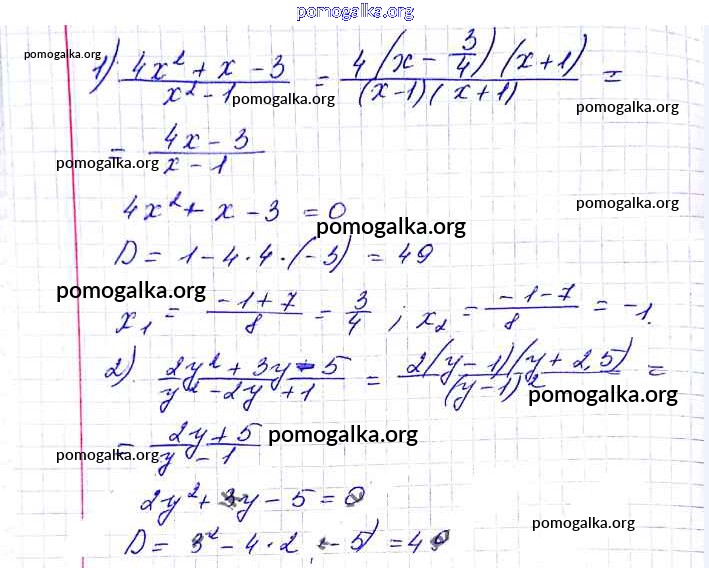 pomogalka.org
pomogalka.org
1) (4x² + x - 3)/(x² - 1) = 4(x - 3/4)(x + 1)/((x-1)(x+1)) =
pomogalka.org
pomogalka.org
= (4x - 3)/(x - 1)
pomogalka.org
4x² + x - 3 = 0
pomogalka.org
pomogalka.org
D = 1 - 4·4·(-3) = 49
pomogalka.org
x₁ = (-1+7)/8 = 3/4 ; x₂ = (-1-7)/8 = -1.
2) (2y² + 3y - 5)/(y² - 2y + 1) = 2(y-1)(y + 2,5)/(y-1)² =
pomogalka.org
= (2y + 5)/(y - 1)
pomogalka.org
pomogalka.org
2y² + 3y - 5 = 0
pomogalka.org
D = 3² - 4·2 · -5) = 49